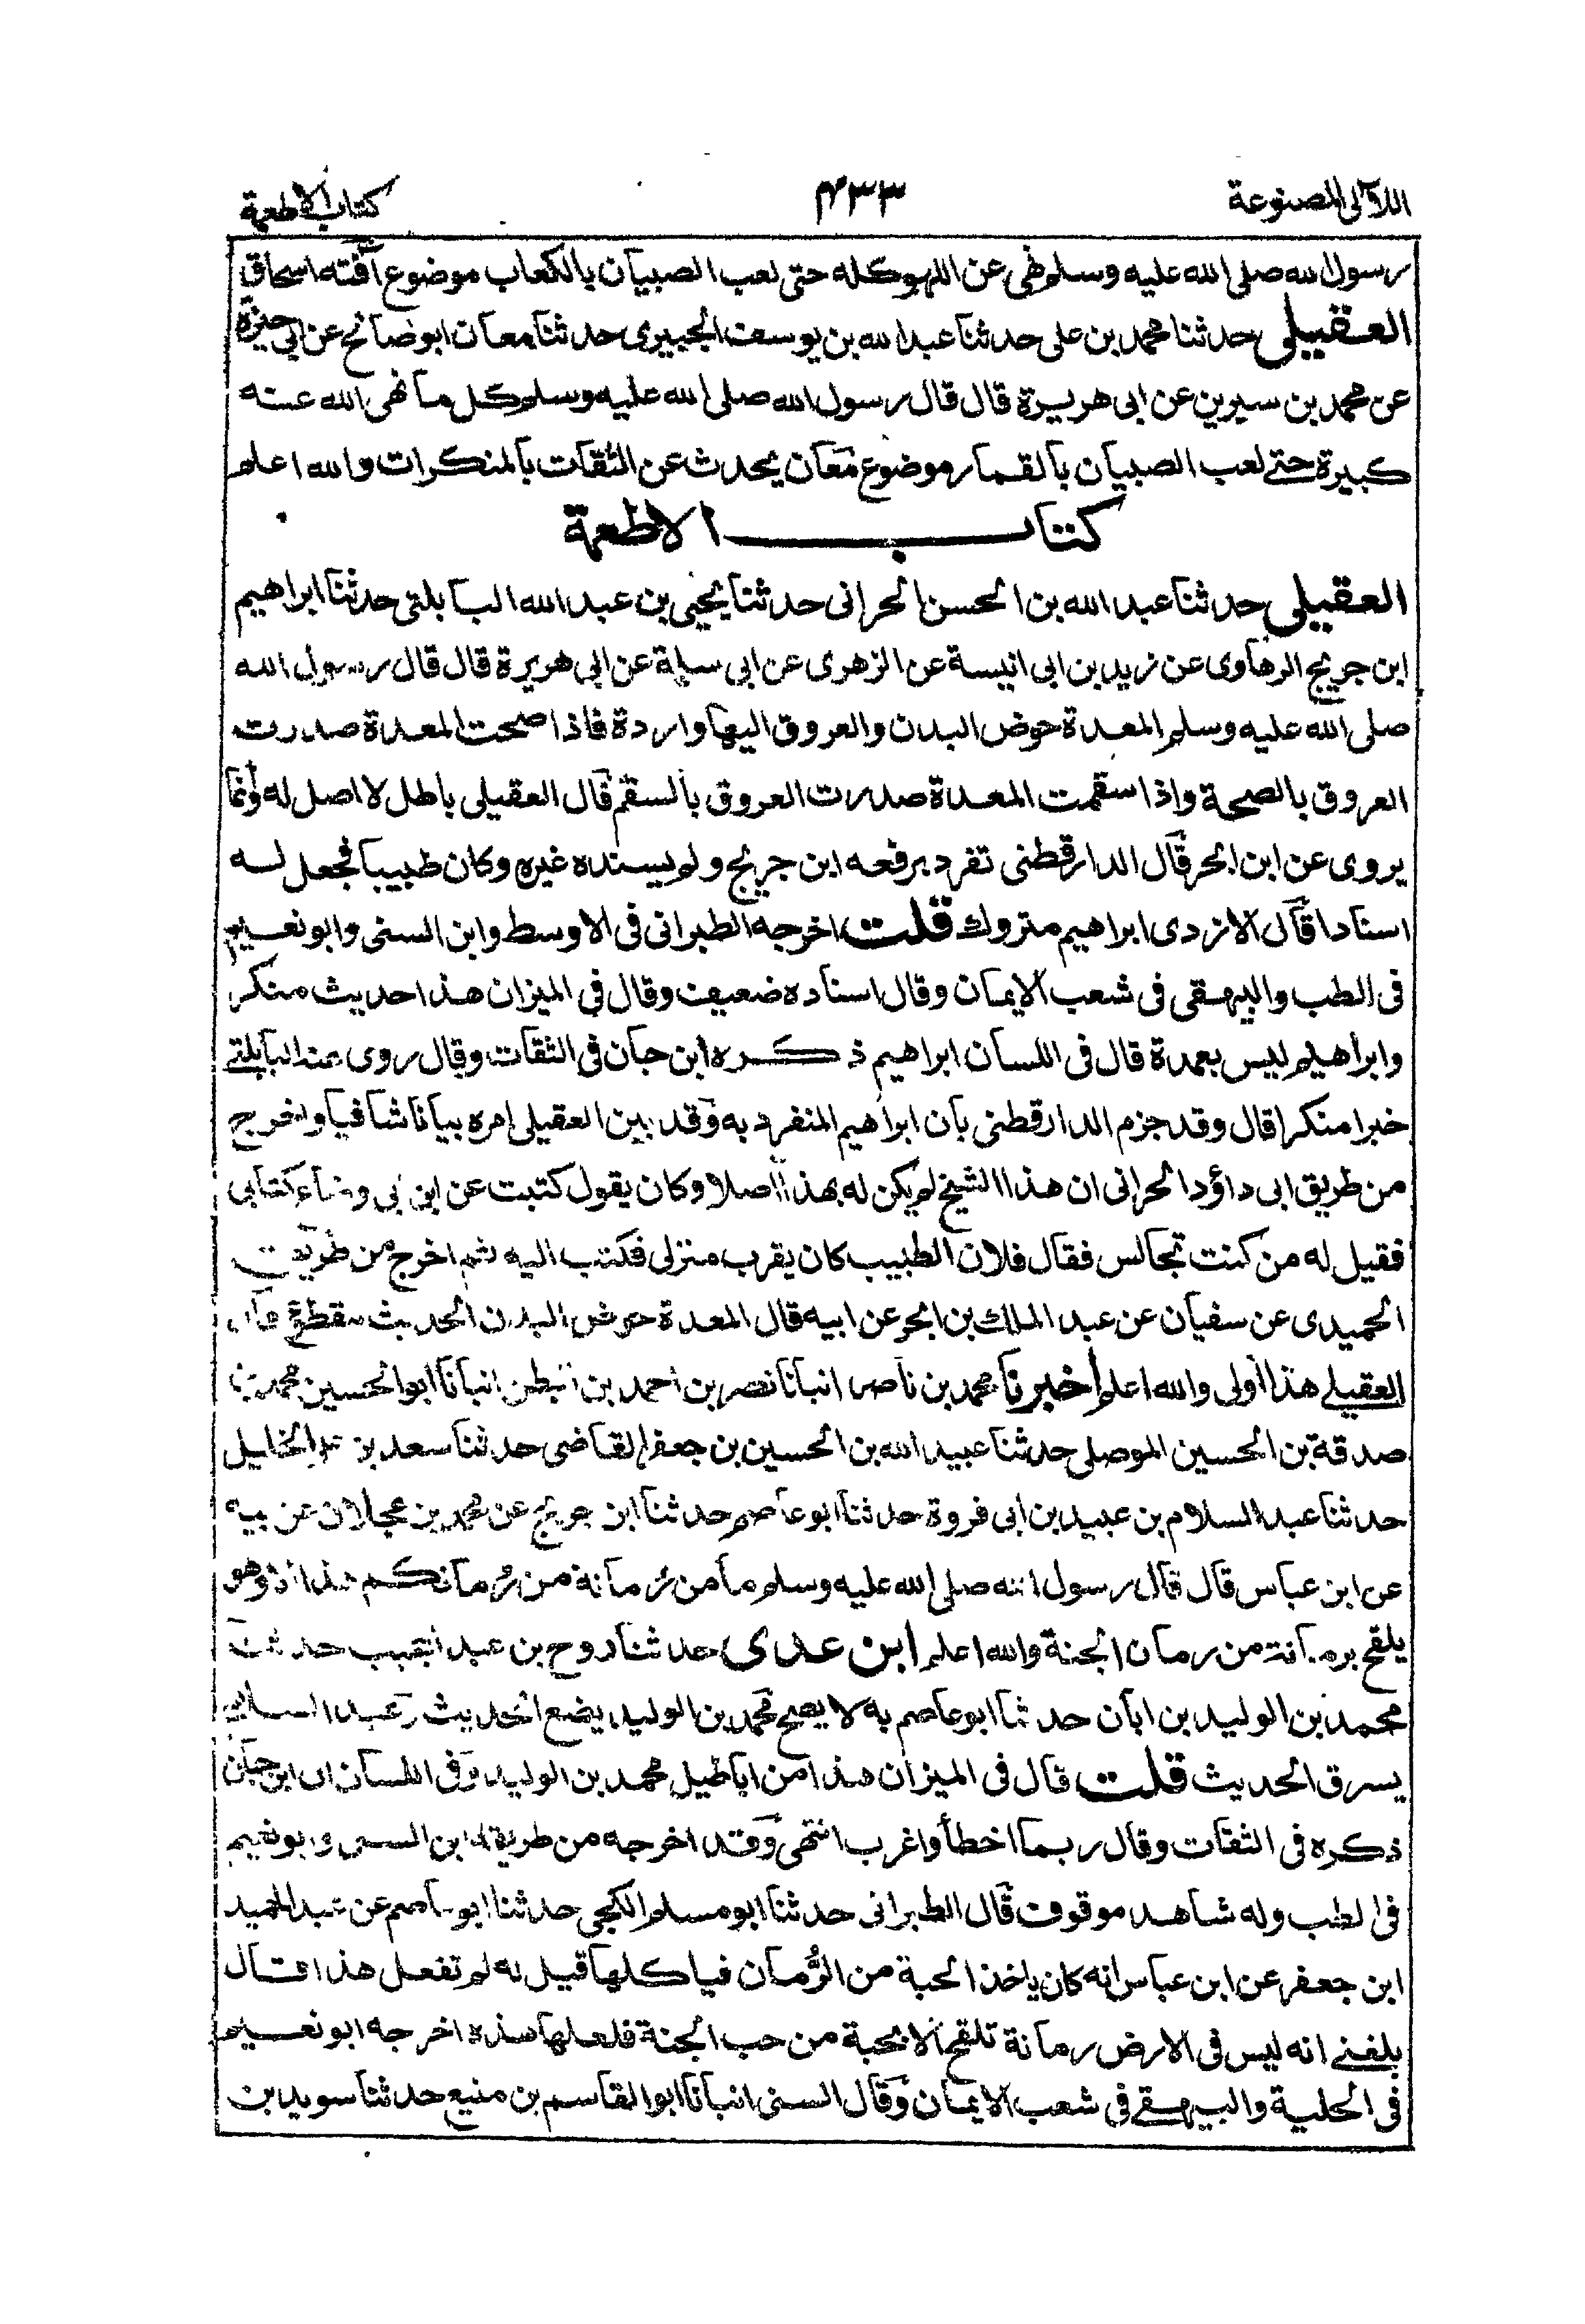 اللآلى المصنوعة
٤٣٣
كتاب الاطعمة
رسول الله صلى الله عليه وسلم نهى عن اللهو كله حتى لعب الصبيان بالكعاب موضوع آفته اسحاق
العقيلى حدثنا محمد بن على حدثنا عبد الله بن يوسف الجبيرى حدثنا معان ابو صالح عن ابي حرة
عن محمد بن سيرين عن ابى هريرة قال قال رسول الله صلى الله عليه وسلم كل ما نهى الله عنه
كبيرة حتے لعب الصبيان بالقمار موضوع معان يحدث عن الثقات بالمنكرات والله اعلم
كتاب الاطعمة
العقيلى حدثنا عبد الله بن الحسن الحرانى حدثنا يحيى بن عبد الله البابلتى حدثنا ابراهيم
ابن جريج الرهاوى عن زيد بن ابى انيسة عن الزهرى عن ابى سلمة عن ابى هريرة قال قال رسول الله
صلى الله عليه وسلم المعدة حوض البدن والعروق اليها واردة فاذا صحت المعدة صدرت
العروق بالصحة واذا سقمت المعدة صدرت العروق بالسقم قال العقيلى باطل لا اصل له وانما
يروى عن ابن ابجر قال الدارقطنى تفرد برفعه ابن جريج ولم يسنده غيره وكان طبيبا فجعل له
اسنادا قال الازدى ابراهيم متروك قلت اخرجه الطبرانى فى الاوسط وابن السنى وابو نعيم
فى الطب والبيهقى فى شعب الايمان وقال اسناده ضعيف وقال في الميزان هذا حديث منكر
وابراهيم ليس بعمدة قال فى اللسان ابراهيم ذكره ابن حبان فى الثقات وقال روى عنه البابلتے
خبرا منكرا قال وقد جزم الدارقطنى بان ابراهيم المنفرد به وقد بين العقيلى امره بيانا شافيا واخرج
من طريق ابى داؤد الحرانى ان هذا الشيخ لم يكن له بهذا اصلا وكان يقول كتبت عن ابن كتابى
فقيل له من كنت تجالس فقال فلان الطبيب كان يقرب منزلى فكتب اليه ثم اخرج من طريق
الحميدى عن سفيان عن عبد الملك بن ابجر عن ابيه قال المعدة حوض البدن الحديث مقطع قال
العقيلے هذا اولى والله اعلم اخبرنا محمد بن ناصر انبانا نصر بن احمد بن البطر انبانا ابو الحسين محمد بن
صدقة بن الحسين الموصلى حدثنا عبيد الله بن الحسين بن جعفر القاضى حدثنا سعد بن الخليل
حدثنا عبد السلام بن عبيد بن ابى فروة حدثنا ابو عاصم حدثنا ابن جريج عن محمد بن عجلان عن ابيه
عن ابن عباس قال قال رسول الله صلى الله عليه وسلم ما من رمانة من رمانكم هذا الا وهو
يلقح برمانة من رمان الجنة والله اعلم ابن عدى حدثنا روح بن عبد المجيب حدثنا
محمد بن الوليد بن ابان حدثنا ابو عاصم به لا يصح محمد بن الوليد يضع الحديث وعبد السلام
يسرق الحديث قلت قال فى الميزان هذا من اباطيل محمد بن الوليد وفى اللسان ان ابن حبان
ذكره فى الثقات وقال ربما اخطأ واغرب انتهى وقد اخرجه من طريقه ابن السنى وابو نعيم
فى الطب وله شاهد موقوف قال الطبرانى حدثنا ابو مسلم الكجى حدثنا ابو عاصم عن عبد الحميد
ابن جعفر عن ابن عباس انه كان ياخذ الحبة من الرمان فياكلها قيل له لم تفعل هذا قال
بلغنے انه ليس فى الارض رمانة تلقح الا بحبة من حب الجنة فلعلها هذه اخرجه ابو نعيم
فى الحلية والبيهقے في شعب الايمان وقال السنى انبانا ابو القاسم بن منيع حدثنا سويد بن